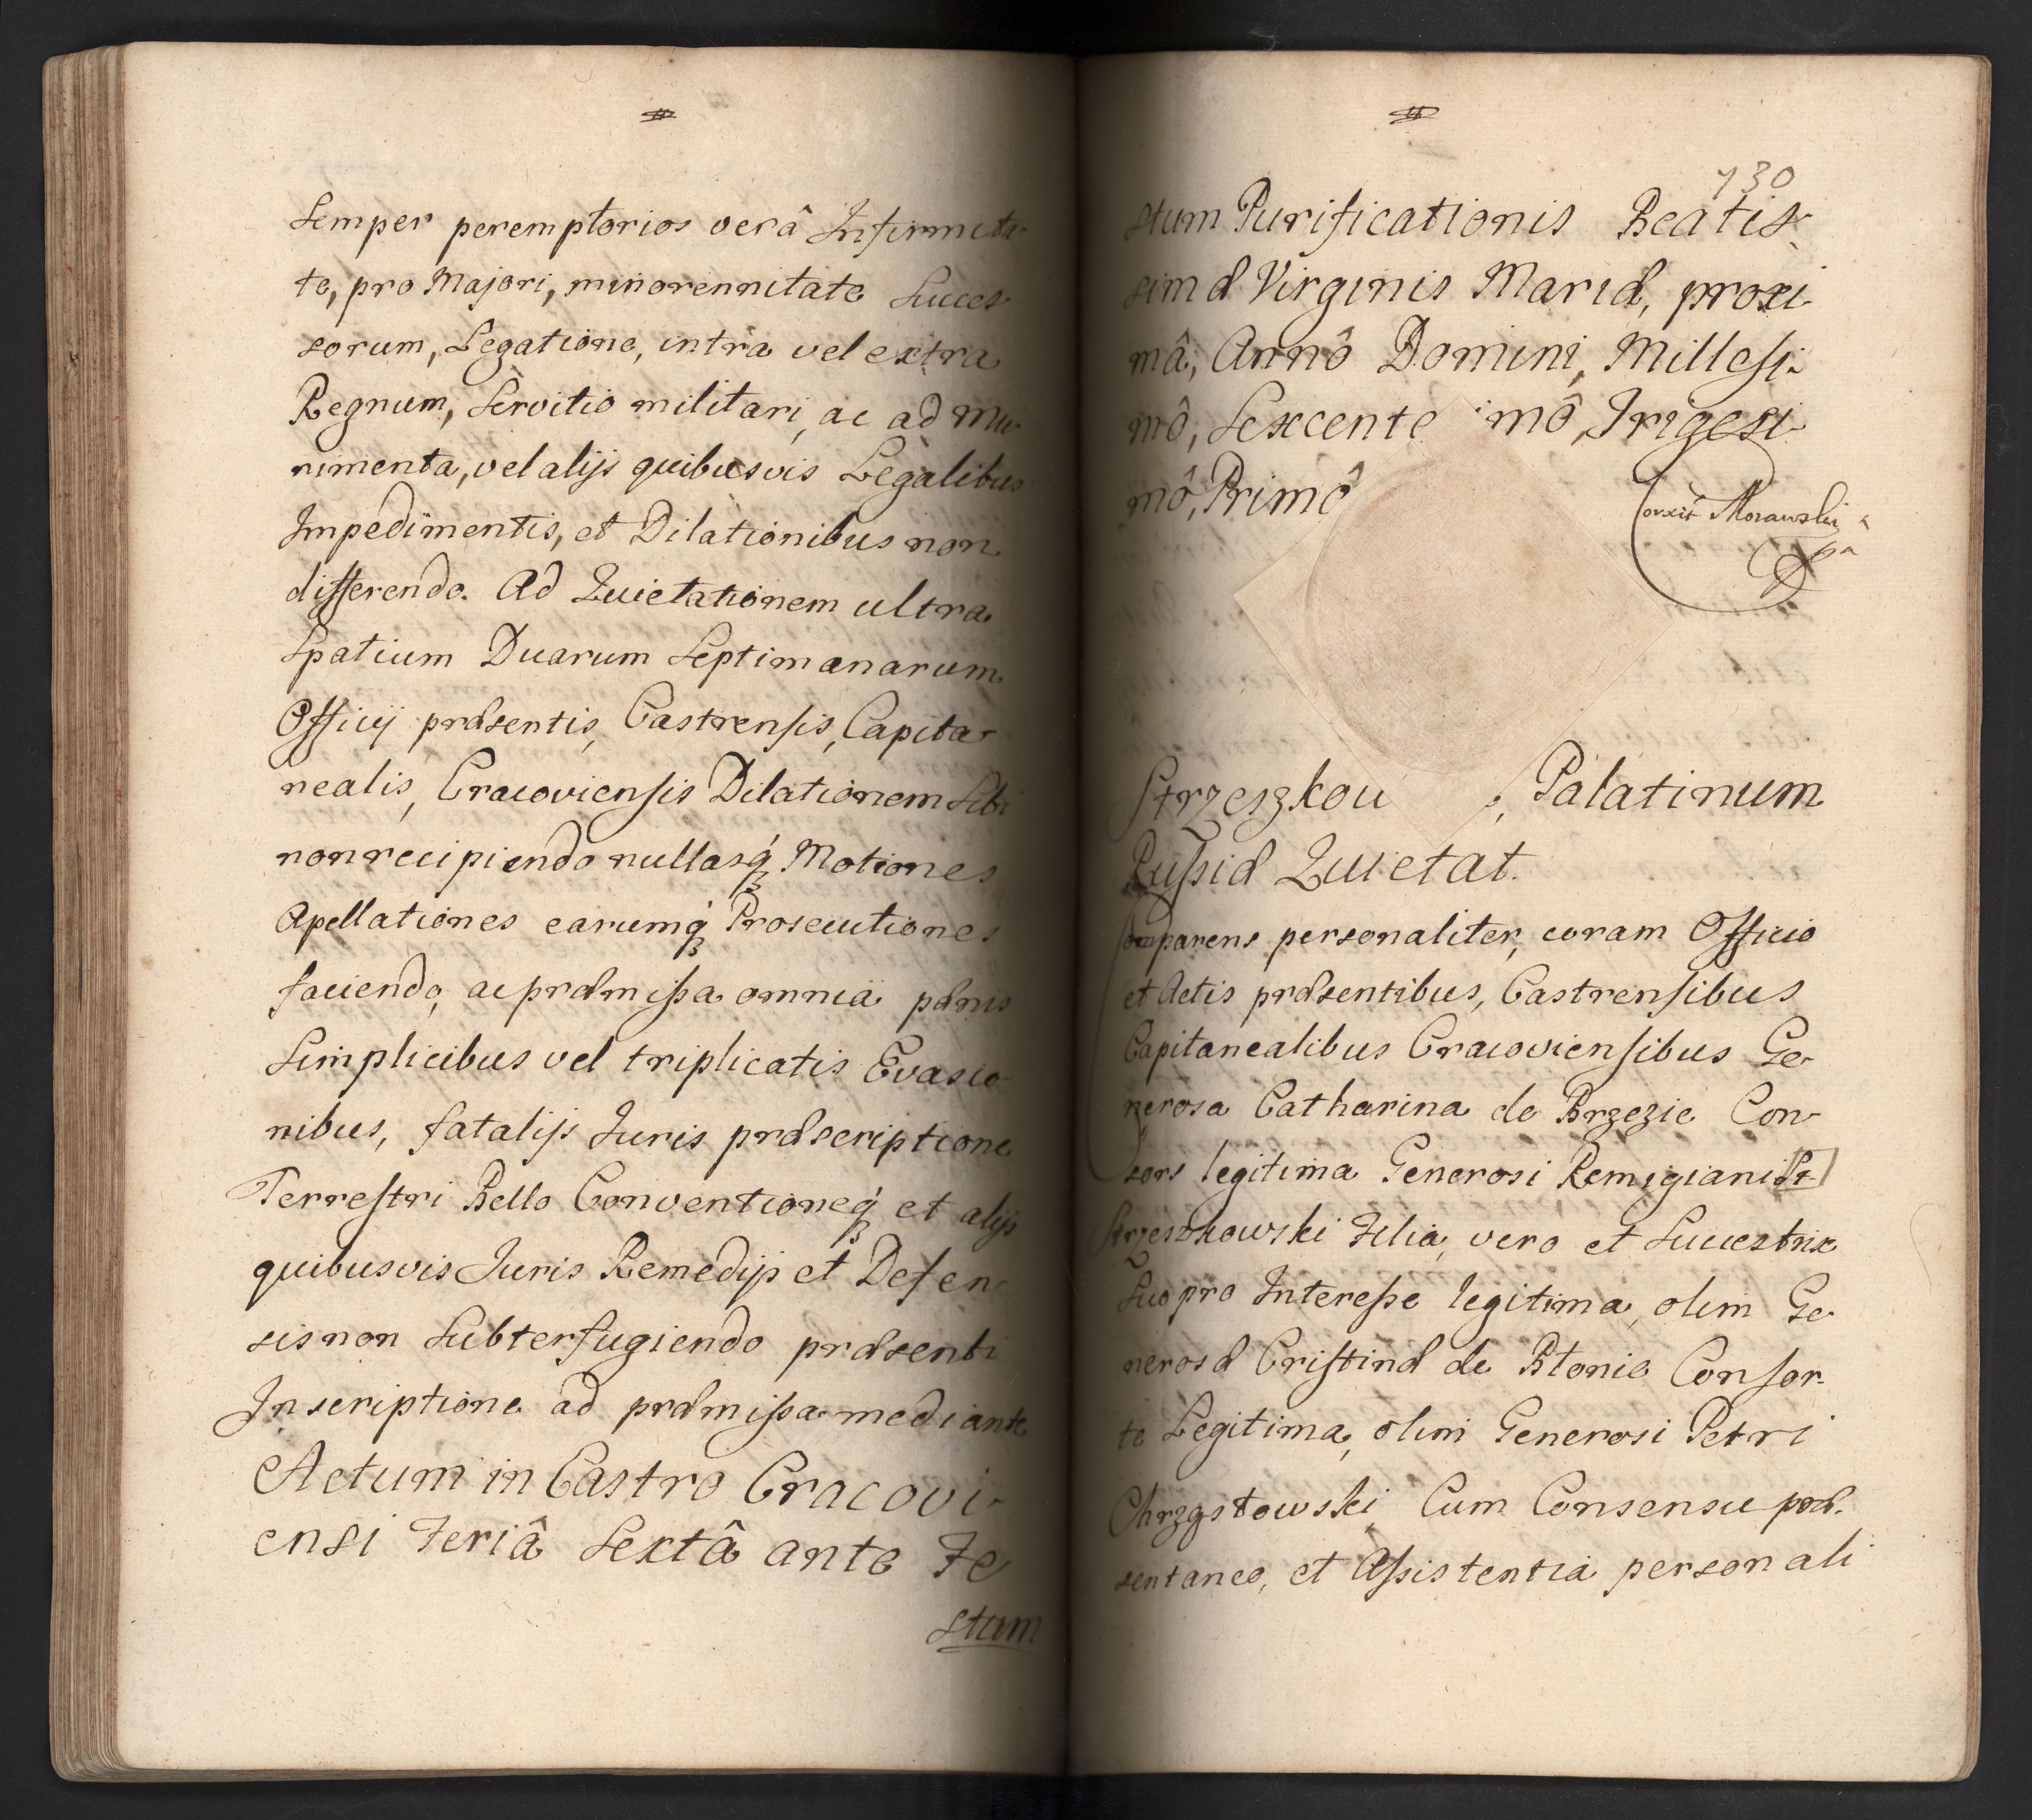 Semper peremptorios verâ Infirmita-
te, pro Majori, minorennitate Succes-
sorum, Legatione, intra vel extra
Regnum, Servitio militari, ac ad Mu-
nimenta, vel alijs quibusvis Legalibus
Impedimentis, et Dilationibus non
differendo. Ad Quietationem ultra
Spatium Duarum Septimanarum
Officij præsentis, Castrensis, Capita-
nealis, Cracoviensis Dilationem Sibi
non recipiendo nullasq́ Motiones
Apellationes earumq́ Prosecutiones
faciendo, ac præmissa omnia pænis
Simplicibus vel triplicatis Evasio-
nibus, fatalijs Juris præscriptione
Terrestri Bello Conventioneq́ et alijs
quibusvis Juris Remedijs et Defen-
sis non Subterfugiendo præsenti
Inscriptione ad præmissa mediante
Actum in Castro Cracovi-
ensi Feriâ Sextâ ante Fe
stum
130
stum Purificationis Beatis-
simæ Virginis Mariæ, proxi-
mâ, Annô Domini, Millesi-
mô, Sexcente imô, Trigesi-
mô, Primô
Corxit Morawski
Strzeszkou , Palatinum
Russiæ Quietat.
Comparens personaliter, coram Officio
et Actis præsentibus, Castrensibus
Capitanealibus Cracoviensibus Ge-
nerosa Catharina de Brzezie Con-
sors legitima Generosi Remigiani St-
Strzeszkowski Filia, vero et Successtrix
Suo pro Interesse legitima, olim Ge-
nerosæ Cristinæ de Btonie Consor-
te Legitima, olim Generosi Petri
Chrzgstowski Cum Consensu præ-
sentaneo, et Assistentia personali